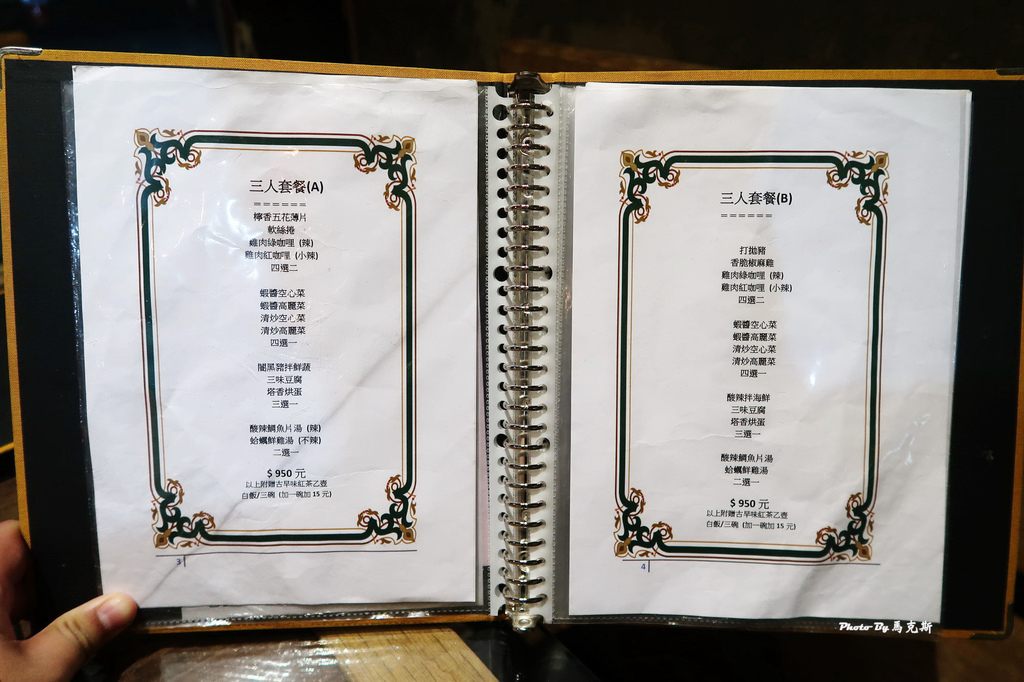 三人套餐(A)
======
檸香五花薄片
軟絲捲
雞肉綠咖哩 (辣)
雞肉紅咖哩 (小辣)
四選二
蝦醬空心菜
蝦醬高麗菜
清炒空心菜
清炒高麗菜
四選一
闇黑豬拌鮮蔬
三味豆腐
塔香烘蛋
三選一
酸辣鯛魚片湯 (辣)
蛤蠣鮮雞湯 (不辣)
二選一
$ 950 元
以上附贈古早味紅茶乙壺
白飯/三碗 (加一碗加 15 元)
3
三人套餐(B)
======
打拋豬
香脆椒麻雞
雞肉綠咖哩 (辣)
雞肉紅咖哩 (小辣)
四選二
蝦醬空心菜
蝦醬高麗菜
清炒空心菜
清炒高麗菜
四選一
酸辣拌海鮮
三味豆腐
塔香烘蛋
三選一
酸辣鯛魚片湯
蛤蠣鮮雞湯
二選一
$ 950 元
以上附贈古早味紅茶乙壺
白飯/三碗 (加一碗加 15 元)
4
Photo By 馬克斯